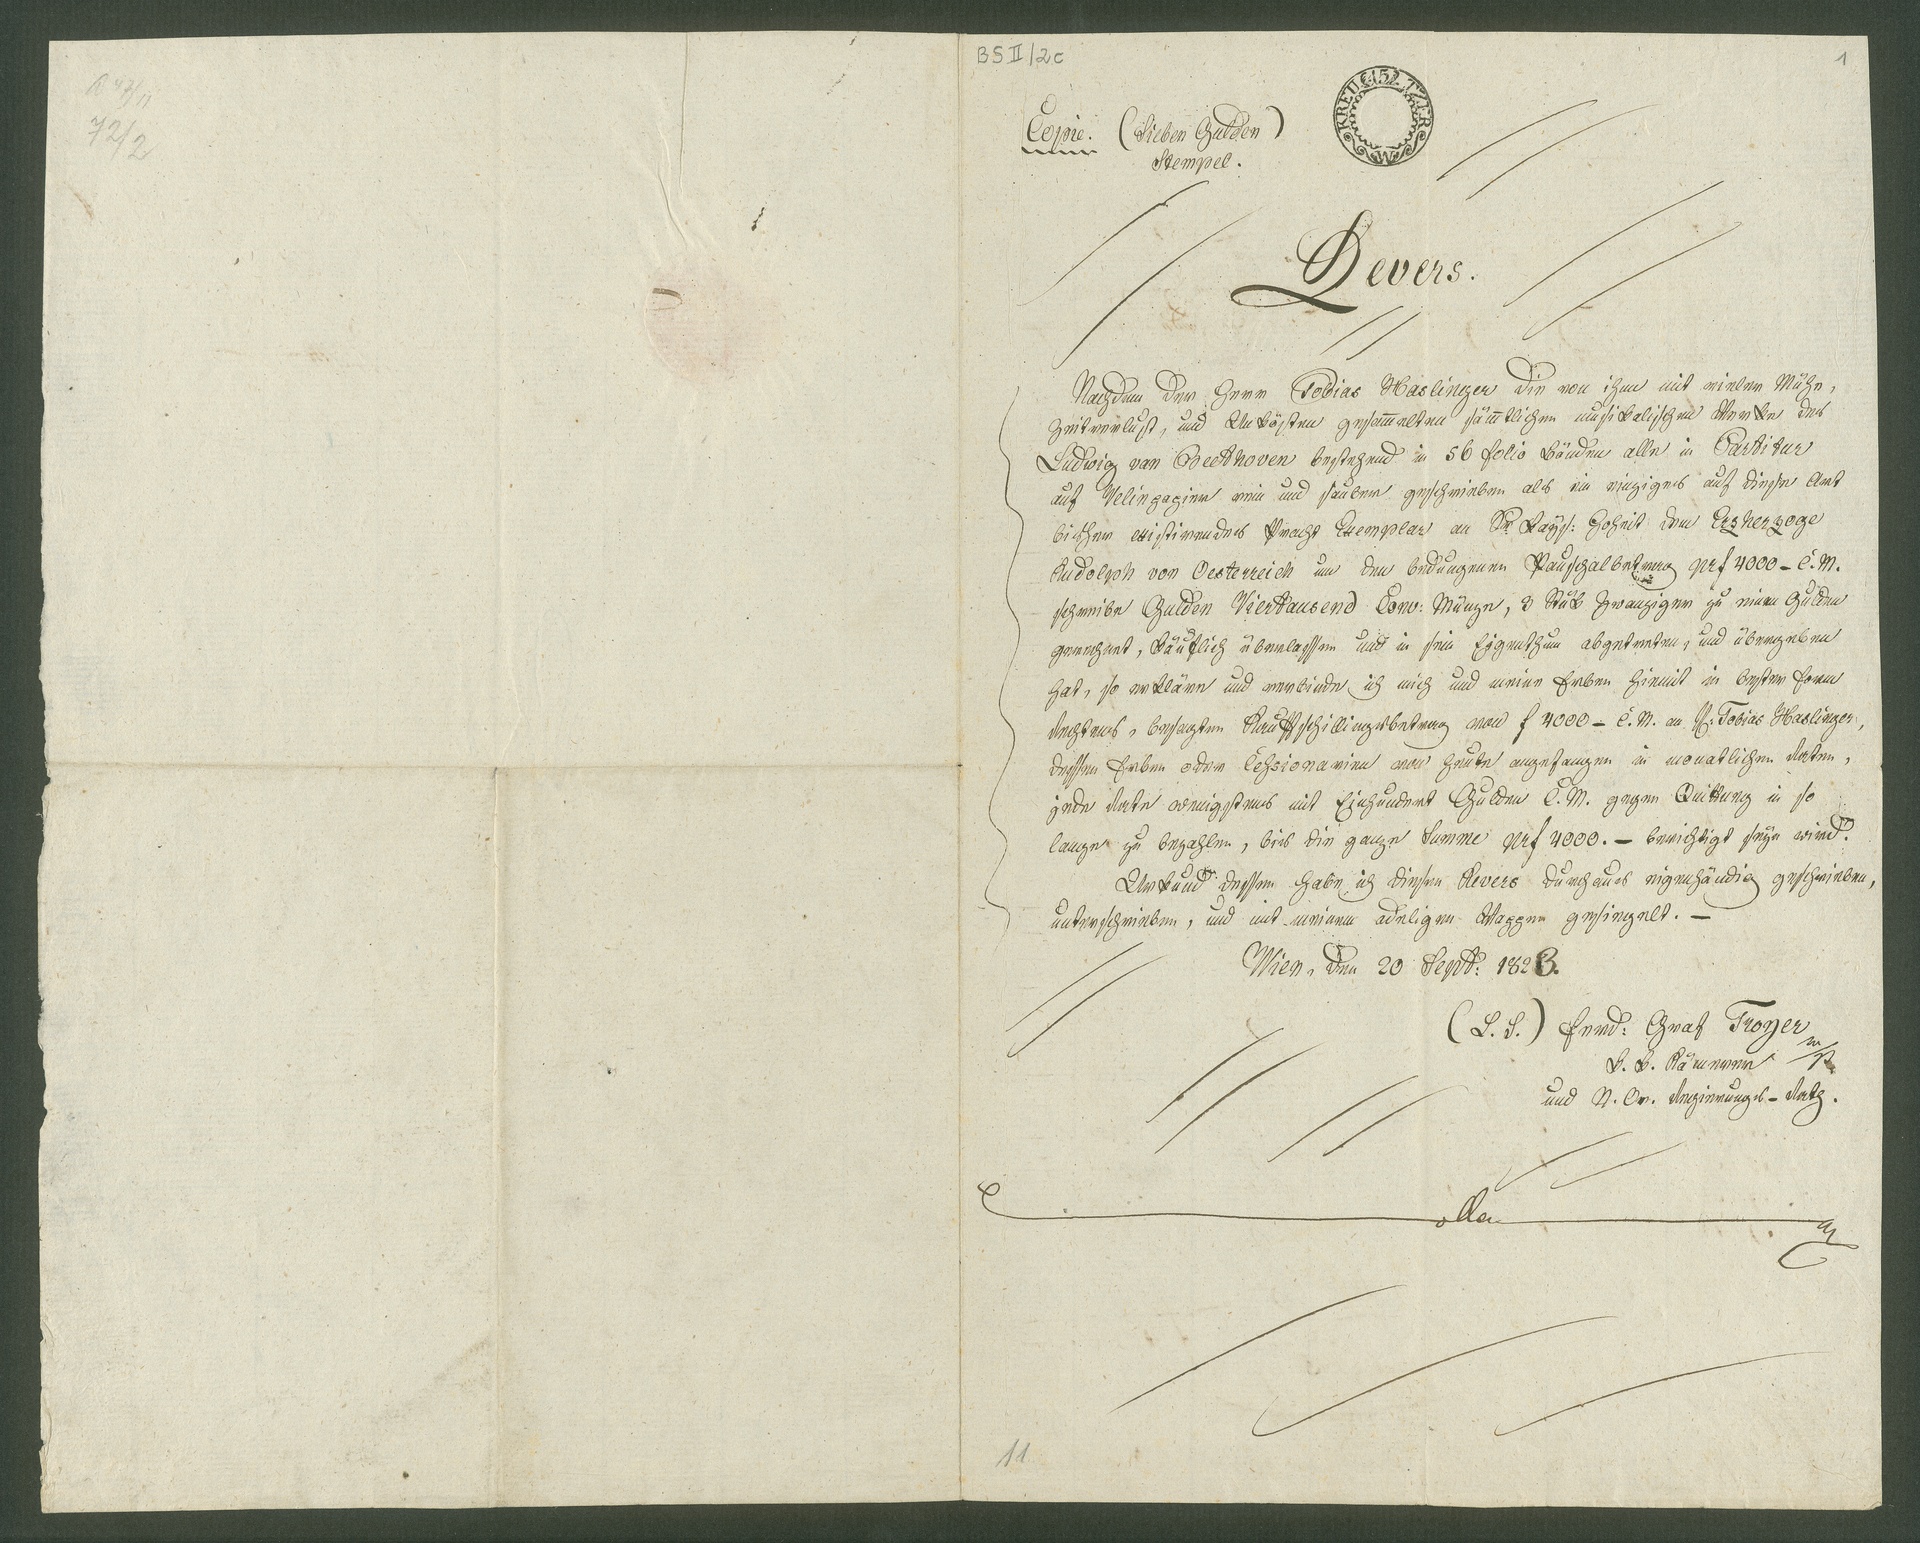 72/2
BS II/2c
1
Copie. (Sieben Gulden)
Stempel.
15 KREUTZER W
Revers.
Nachdem der Herr Tobias Haslinger die von ihm mit vieler Mühe,
Zeitverlust, und Unkösten gesam̅elten säm̅tlichen musikalischen Werke des
Ludwig van Beethoven bestehend in 56 folio Bänden alle in Partitur
auf Velinpapier rein und sauber geschrieben als ein einziges auf diese Art
bisher existirendes Pracht Exemplar an Se Kays: Hoheit dem Erzherzoge
Rudolph von Oesterreich um den bedungenen Pauschalbetrag pr f 4000 – C. M.
schreibe Gulden Viertausend Conv: Münze, 3 Stük Zwanziger zu einen Gulden
gerechnet, käuflich überlassen und in sein Eigenthum abgetreten, und übergeben
hat, so erkläre und verbinde ich mich und meine Erben hiemit in bester Form
Rechtens, besagten Kaufschillingsbetrag von f 4000 – C. M. an H: Tobias Haslinger,
dessen Erben oder Cessionarien von heute angefangen in monatlichen Raten,
jede Rate wenigstens mit Einhundert Gulden C. M. gegen Quittung in so
lange zu bezahlen, bis die ganze Summe pr f 4000. – berichtigt seyn wird.
Urkund dessen habe ich diesen Revers durchaus eigenhändig geschrieben,
unterschrieben, und mit meinem adeligen Wappen gesiegelt. –
Wien, den 20 Sept: 1823.
(L. S.) Ferd: Graf Troyer
k. k. Käm̅erer
und N. Oe. Regierungs-Rath.
11